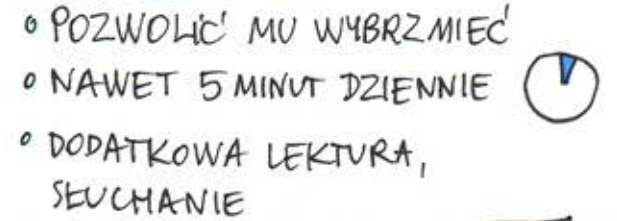 • POZWOLIĆ MU WYBRZMIEĆ
• NAWET 5 MINUT DZIENNIE
• DODATKOWA LEKTURA,
SŁUCHANIE